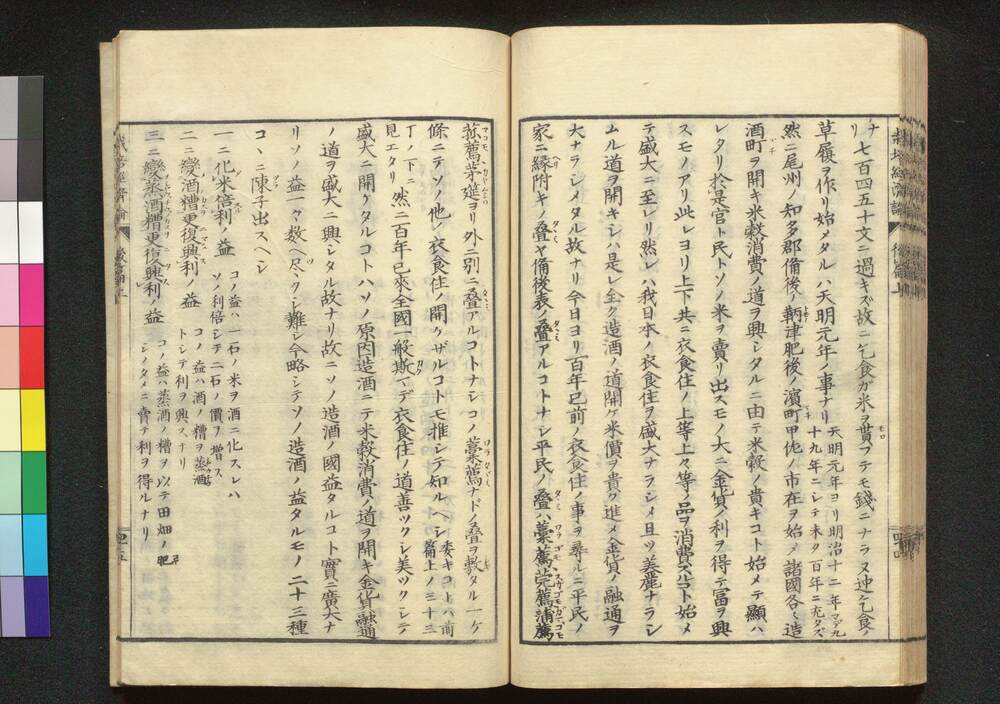 ナ七百四五十文ニ過キズ故ニ乞食ガ米ヲ貰フテモ錢ニナラヌ迚乞食ノ
草履ヲ作リ始メタルハ天明元年ノ事ナリ天明元年ヨリ明治十二年マデ九十九年ニシテ未タ百年ニ充タズ
然ニ尾州ノ知多郡備後ノ鞆津肥後ノ濱町甲佗ノ市在ヲ始メ諸國各造
酒町ヲ開キ米穀消費ノ道ヲ興シタルニ由テ米穀ノ貴キコト始メテ顯ハ
レタリ於是官ト民トソノ米ヲ賣リ出スモノ大ニ金貨ノ利ヲ得テ富ヲ興
スモノアリ此レヨリ上下共ニ衣食住ノ上等上々等ノ品ヲ消費スルコト始メ
テ盛大ニ至レリ然レハ我日本ノ衣食住ヲ盛大ナラシメ且ツ美麗ナラシ
ムル道ヲ開キシハ是レ全ク造酒ノ道開ケ米價ヲ貴ク進メ金貨ノ融通ヲ
大ナラシメタル故ナリ今日ヨリ百年已前ノ衣食住ノ事ヲ尋ルニ平民ノ
家ニ縁附キノ疊ヤ備後表ノ疊アルコトナシ平民ノ疊ハ藁薦莞薦蒲薦
菰薦茅筵ヨリ外ニ別ニ疊アルコトナシコノ藁薦ナドノ疊ヲ敷タル一ケ
條ニテソノ他ノ衣食住ノ開ケザルコトモ推シテ知ルヘシ委キコトハ前篇上ノ三十三
丁ノ下ニ見エタリ然ニ百年已來全國一般斯マデ衣食住ノ道善ツクシ美ツクシテ
盛大ニ開ケタルコトハソノ原因造酒ニテ米穀消費ノ道ヲ開キ金貨融通
ノ道ヲ盛大ニ興シタル故ナリ故ニソノ造酒ノ國益タルコト實ニ廣大ナ
リソノ益一々数ヘ尽クシ難シ今略シテソノ造酒ノ益タルモノ二十三種
コヽニ陳子出スヘシ
一ニ化米倍利ノ益 コノ益ハ一石ノ米ヲ酒ニ化スレハソノ利倍シテ二石ノ價ヲ増ス
二ニ變酒糟更興利ノ益 コノ益ハ酒ノ糟ヲ蒸酒トシテ利ヲ興スナリ
三ニ變蒸酒糟更復興利ノ益 コノ益ハ蒸酒ノ糟ヲ以テ田畑ノ肥シノタメニ賣テ利ヲ得ルナリ